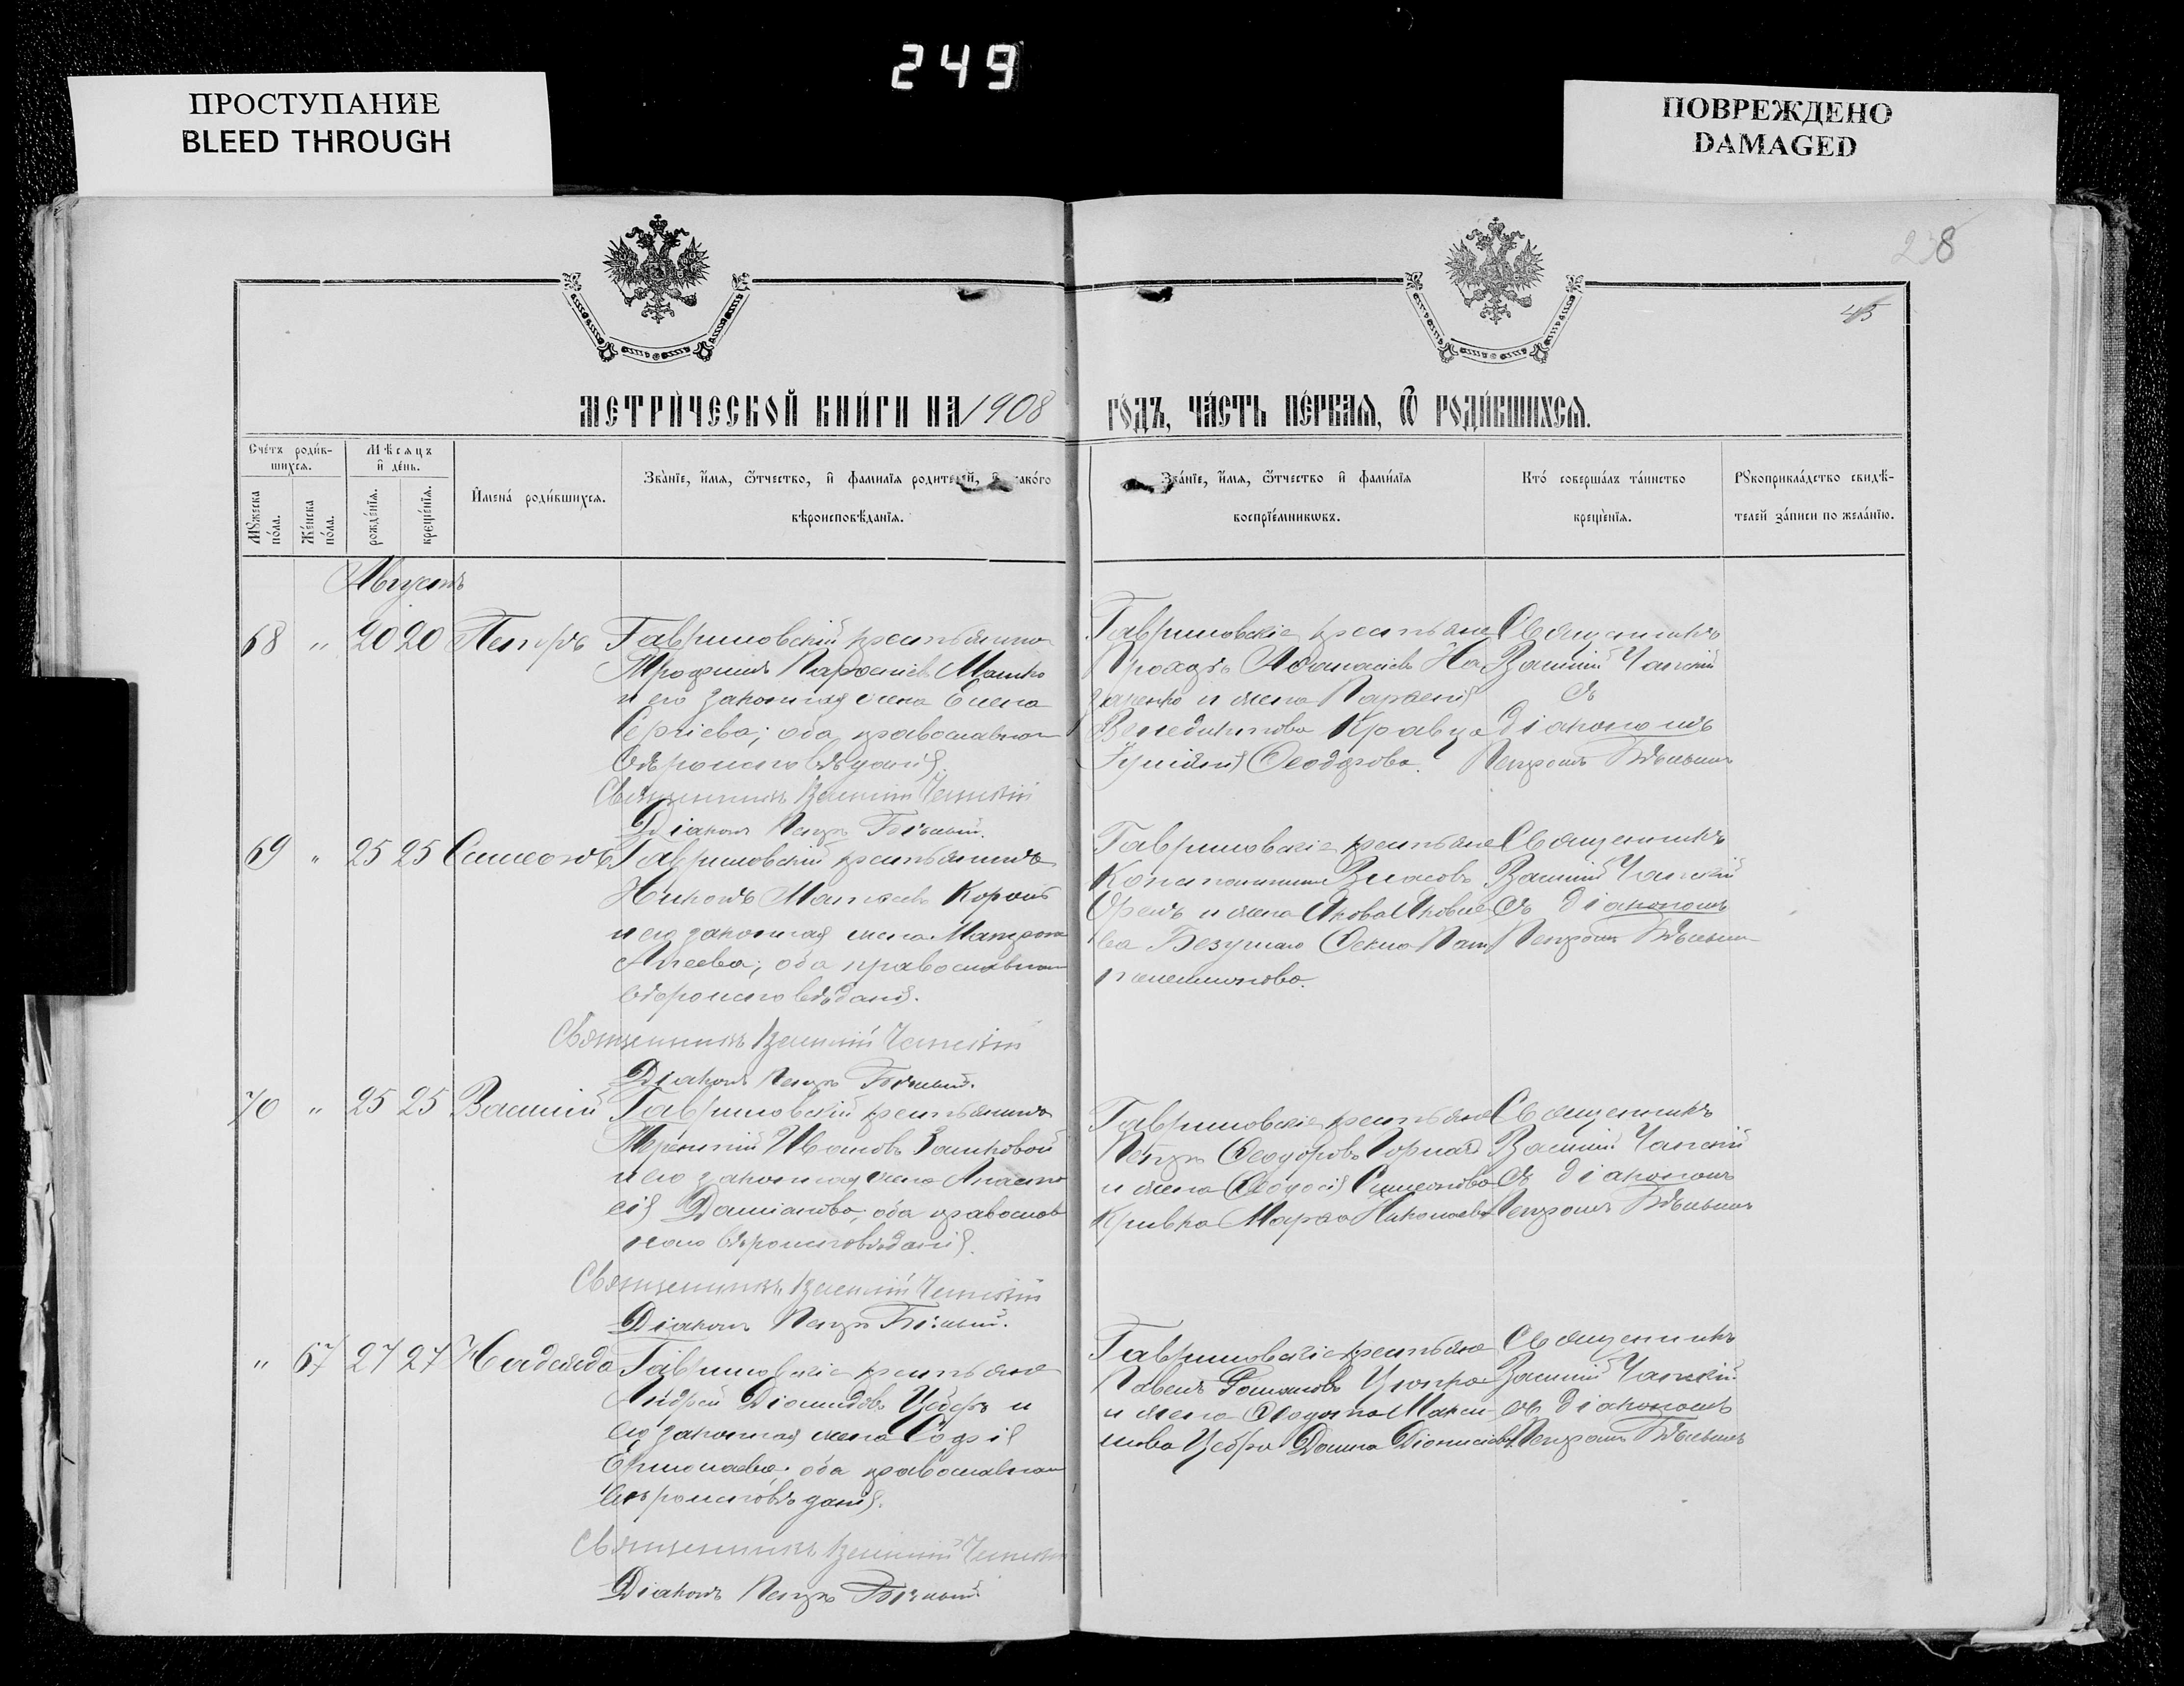 249
ПРОСТУПАНИЕ
BLEED THROUGH
ПОВРЕЖДЕНО
DAMAGED
238
45
МЕТРИ́ЧЕСКОЙ КНИ́ГИ НА 1908 ГО́ДЪ, ЧА́СТЬ ПЕ́РВАѦ, Ѡ҆ РОДИ́ВШИХСѦ.
Сче́тъ роди́в-
шихсѧ.
Мѣ́сѧцъ
и҆ де́нь.
Мꙋ́жеска
по́ла.
Же́нска
по́ла.
рожде́нїѧ.
креще́нїѧ.
И҆мена̀ роди́вшихсѧ.
Зва́нїе, и҆́мѧ, ѻ҆́тчество, и҆ фами́лїѧ роди́телей, и҆ како́го
вѣроисповѣ́данїѧ.
Зва́нїе, и҆́мѧ, ѻ҆́тчество и҆ фами́лїѧ
воспрїе́мникѡвъ.
Кто́ соверша́лъ та́инство
креще́нїѧ.
Рꙋкоприкла́дство свидѣ́-
телей за́писи по жела́нїю.
Августъ
68 " 20 20 Петръ
Гавриловскій крестьянинъ
Трофимъ Парѳеніевъ Мошко
и его законная жена Елена
Сергіева; оба православнаго
вѣроисповѣданія.
Священникъ Василій Чапскій
Діаконъ Петръ Бѣлый.
Гавриловскіе крестьяне
жена
Кравца
Ѳеодорова.
Священникъ
Василій Чапскій
съ
діакономъ
Петромъ Бѣлымъ
69 " 25 25 Симеонъ
Гавриловскій крестьянинъ
Никонъ Матѳеевъ Король
и его законная жена Матрона
оба православнаго
вѣроисповѣданія.
Священникъ Василій Чапскій
Діаконъ Петръ Бѣлый.
Гавриловскіе крестьяне
Константинъ Власовъ
и жена Якова Яковле-
ва Ѳекла Пан-
телеимонова.
Священникъ
Василій Чапскій
съ діакономъ
Петромъ Бѣлымъ
70 " 25 25 Василій
Гавриловскій крестьянинъ
Терентій Ивановъ
и его законная жена Анаста-
сія Даміанова; оба православ-
наго вѣроисповѣданія.
Священникъ Василій Чапскій
Діаконъ Петръ Бѣлый.
Гавриловскіе крестьяне
Петръ Ѳеодоровъ
и жена Ѳеодосія Симеонова
Кривко Марѳа Николаева
Священникъ
Василій Чапскій
съ діакономъ
Петромъ Бѣлымъ
" 67 27 27 Надежда
Гавриловскіе крестьяне
Андрей Діомидовъ Цебръ и
его законная жена Софія
Ермолаева; оба православнаго
вѣроисповѣданія.
Священникъ Василій Чапскій
Діаконъ Петръ Бѣлый
Гавриловскіе крестьяне
Павелъ Романовъ Цюпка
и жена Макси-
мова Цебра Домна Діонисіева
Священникъ
Василій Чапскій
съ діакономъ
Петромъ Бѣлымъ